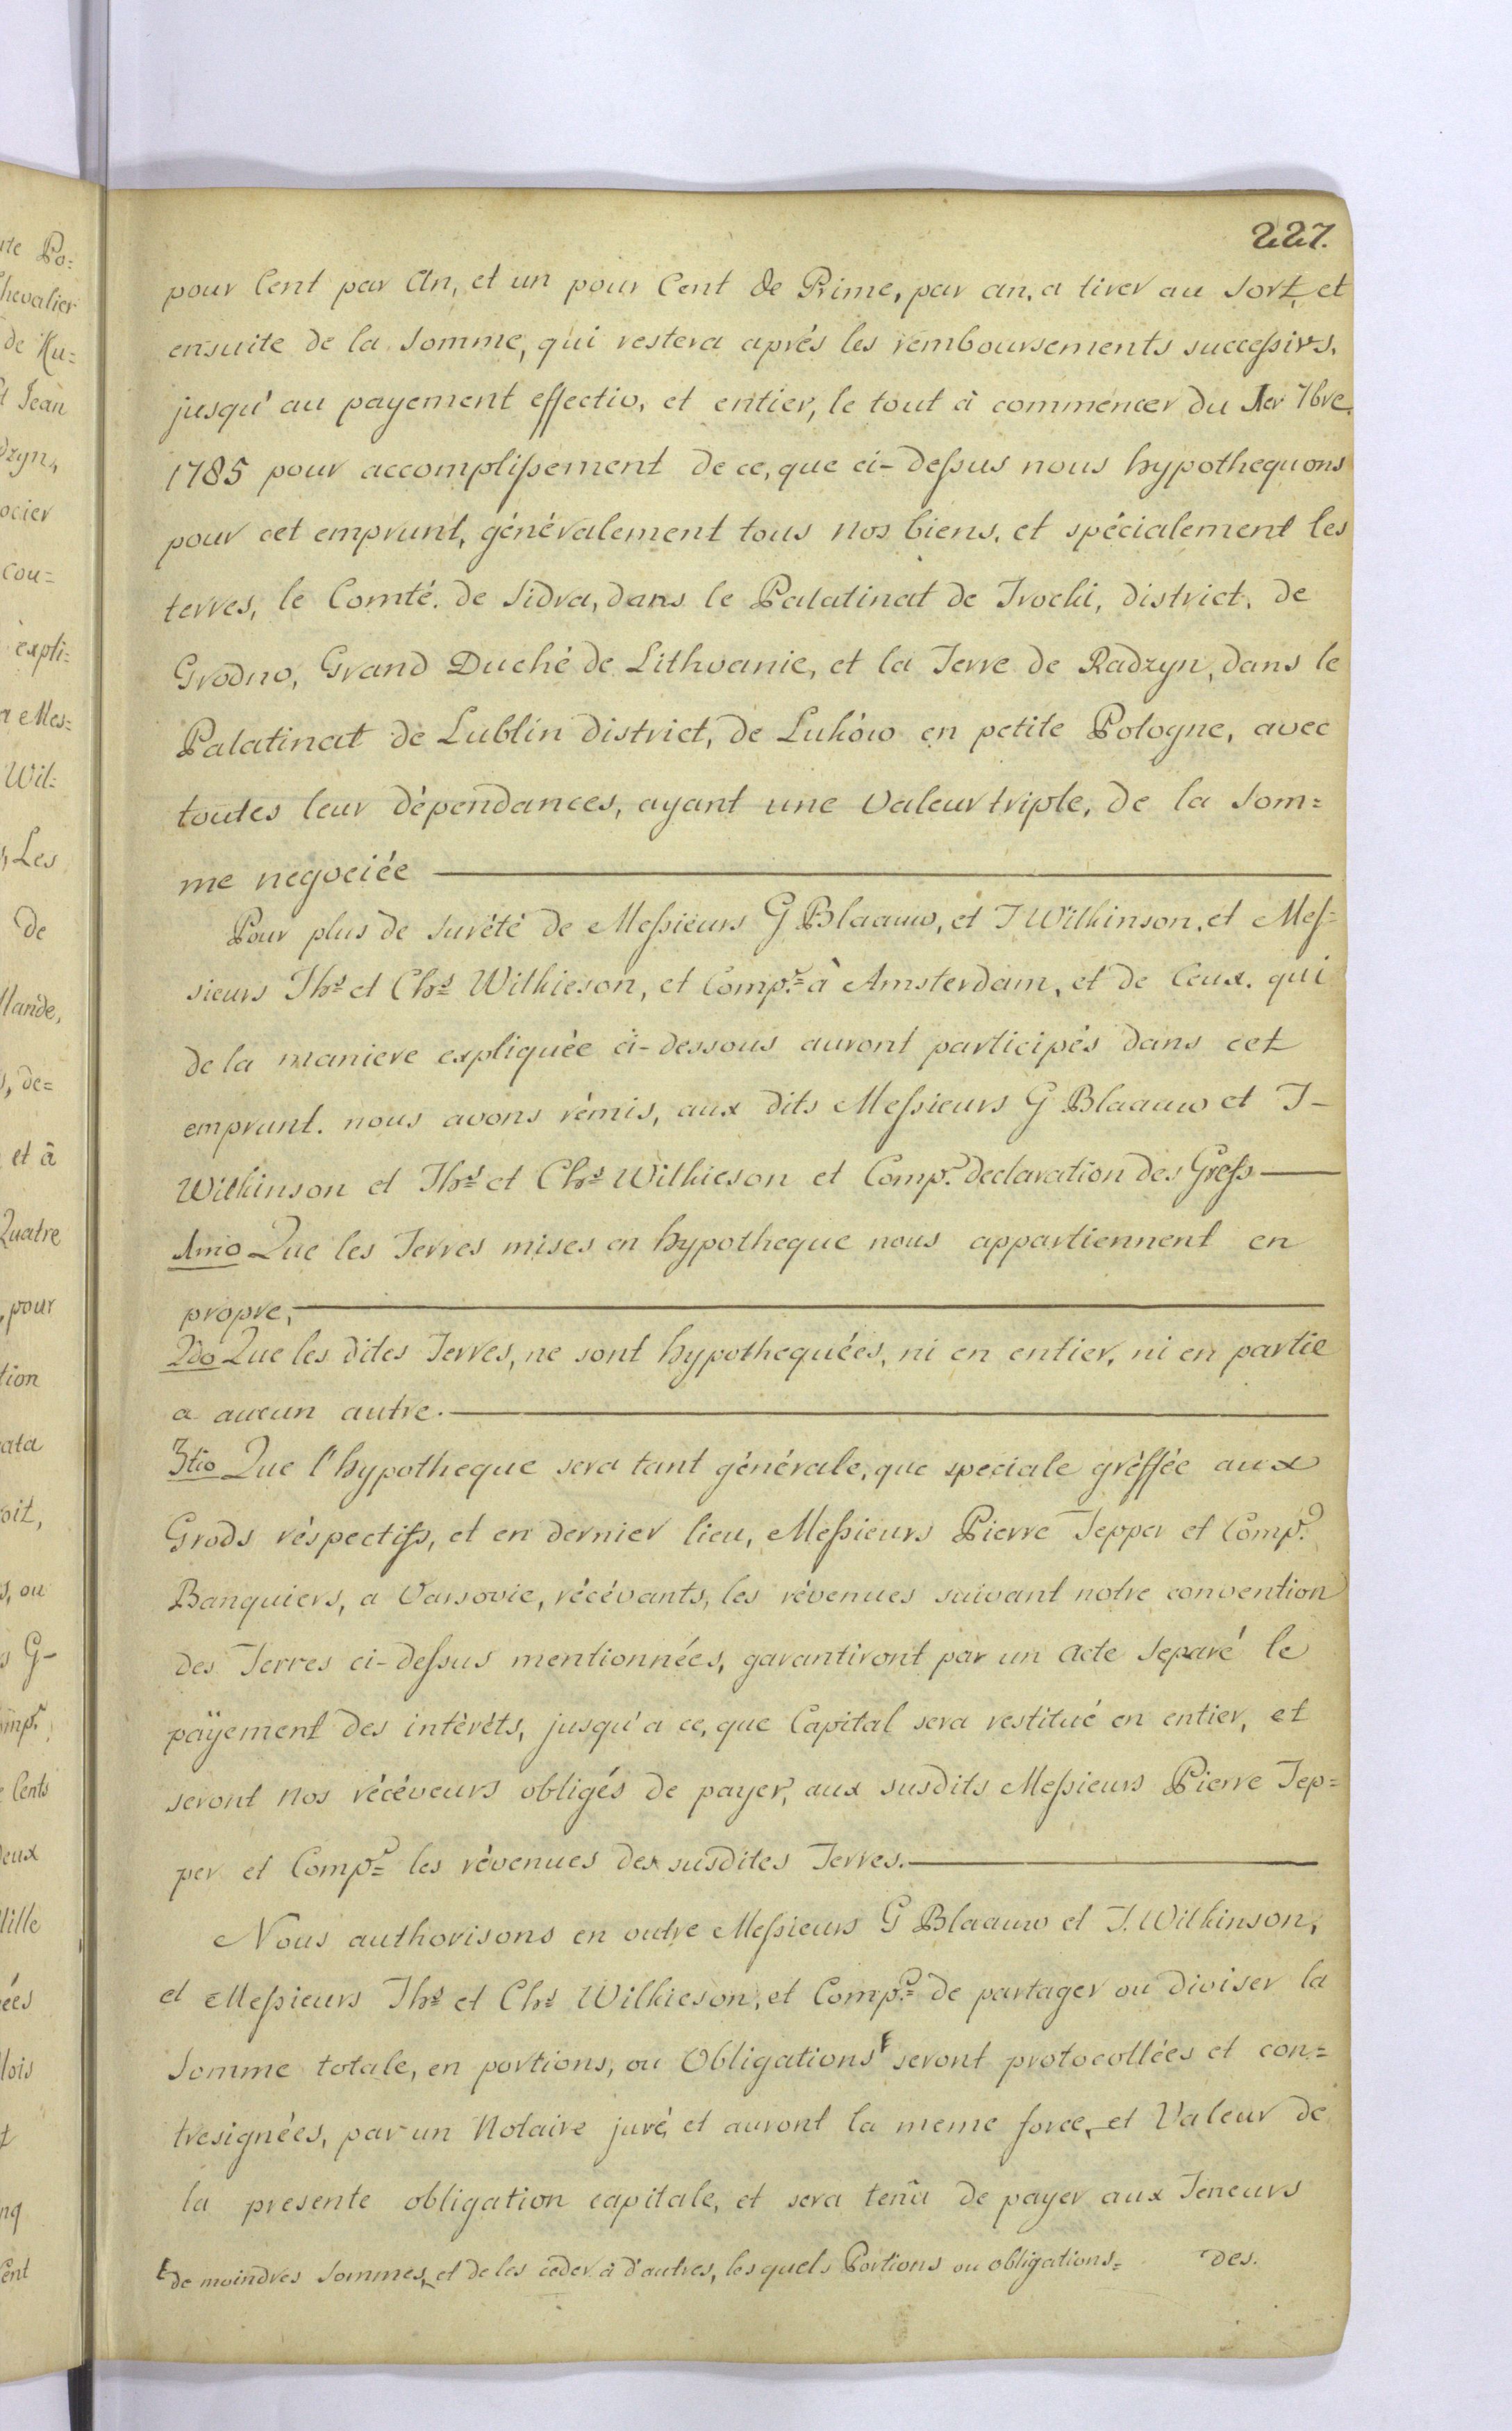 227.
pour Cent par An, et un pour Cent de Prime, par an, a tirer au sort, et
ensuite de la somme, qui restera aprés les remboursements successivs.
jusqu'au payement effectiv, et entier, le tout à commencer du 1er 7bre.
1785 pour accomplissement de ce, que ci-dessus nous hypothequons
pour cet emprunt, générulement tous nos biens, et spécialement les
terres, le Comté. de Sidra, dans le Palatinat de Trocki, district. de
Grodno, Grand Duché de Lithvanie, et la Terre de Radzyn, dans le
Palatinat de Lublin district, de Luków en petite Pologne, avec
toutes leur dépendances, ayant une Valeur triple, de la Som=
me negociée
Pour plus de surété de Messieurs G Blaauw, et J Wilkinson, et Mes=
sieurs Ths et Chs Wilkieson, et Compe à Amsterdam, et de Ceux. qui
de la maniere expliquée ci-dessous auront participés dans cet
emprunt. nous avons rémis, aux dits Messieurs G Blaauw et J-
Wilkinson et Ths et Chs Wilkieson et Compe declaration des Grefs
1mo Que les Terres mises en hypotheque nous appartiennent en
propre,
2do Que les dites Terres, ne sont hypothequées, ni en entier, ni en partie
a aucun autre.
3tio Que l'hypotheque sera tant générale, que speciale gréffée aux
Grods réspectifs, et en dernier lieu, Messieurs Pierre Tepper et Compe
Banquiers, a Varsovie, récévants, les révenues suivant notre convention
des Terres ci-dessus mentionnées, garantiront par un acte Separé le
päyement des intéréts, jusqu'a ce, que Capital sera restitué en entier, et
seront nos récéveurs obligés de payer, aux susdits Messieurs Pierre Tep=
per et Compe les révenues des susdites Terres.
Nous authorisons en outre Messieurs G Blaauw et J. Wilkinson,
et Messieurs Ths et Chs Wilkieson, et Compe de partager ou diviser la
Somme totale, en portions, ou Obligations seront protocollées et con=
tresignées, par un Notaire juré, et auront la meme force, et Valeur de
la presente obligation capitale, et sera tenû de payer aux Teneurs
de moindres Sommes, et de les ceder à d'autres, lesquels Portions ou obligations= des.